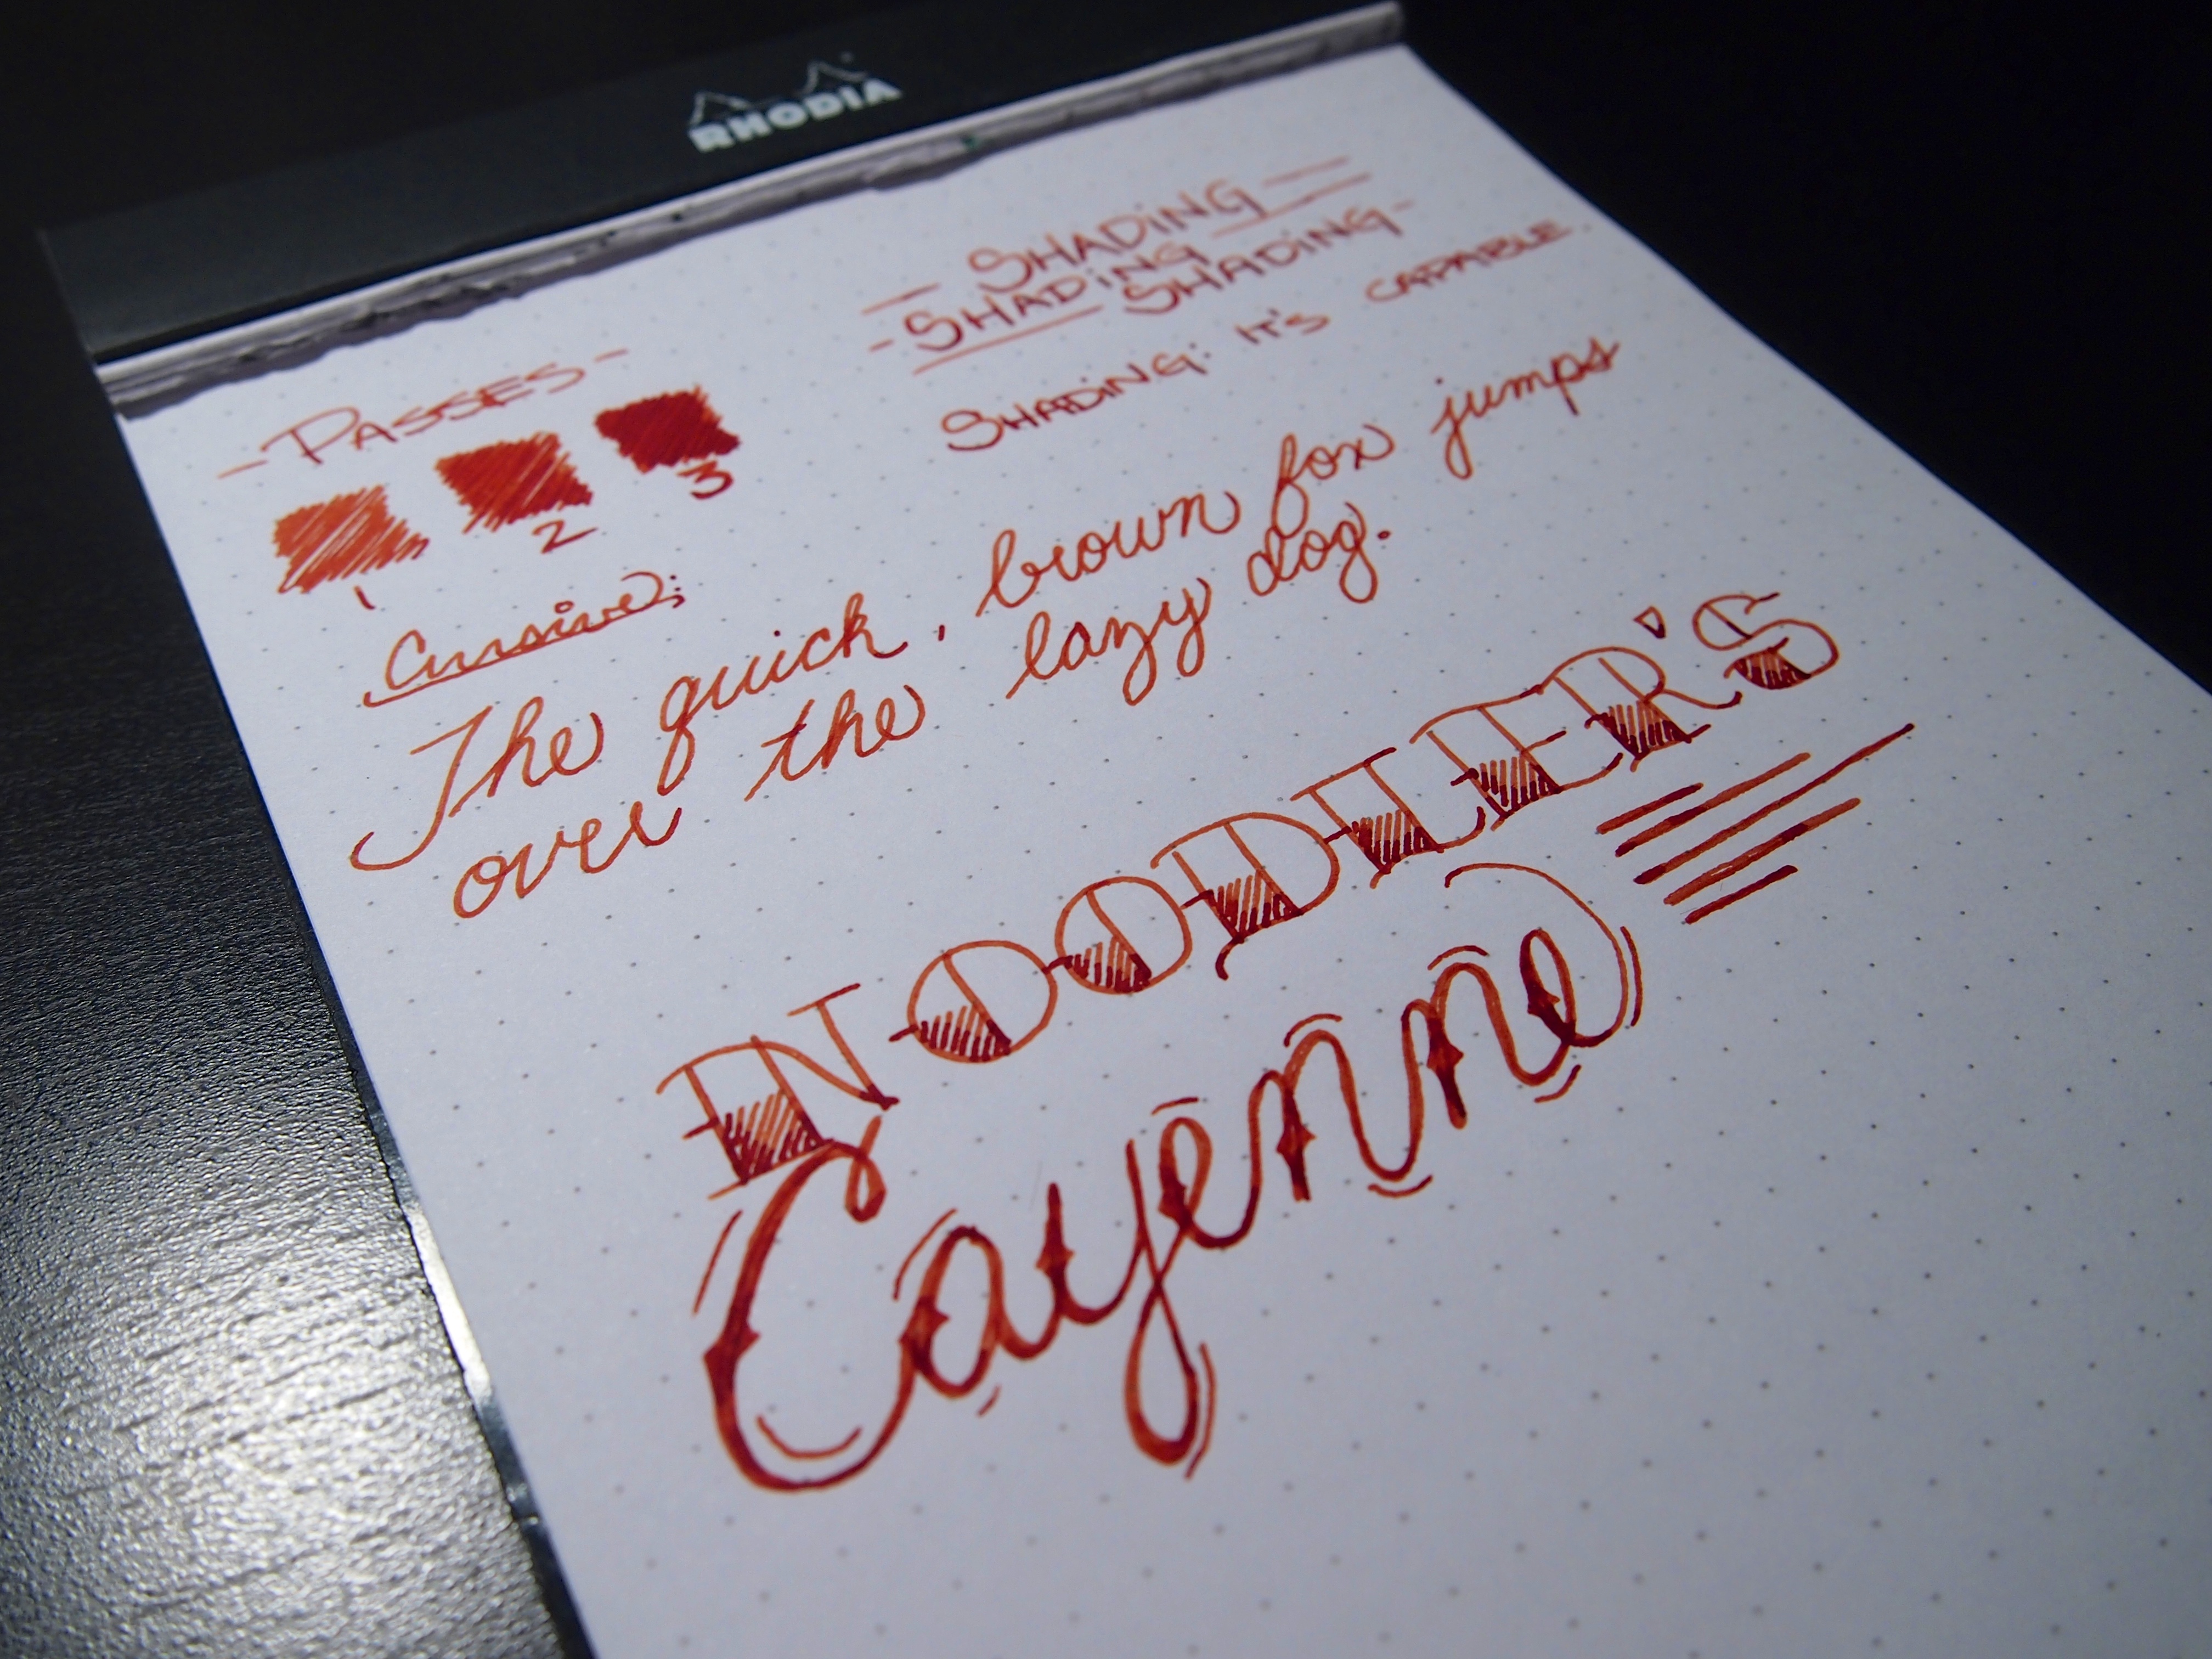 RHODIA
SHADING
SHADING
SHADING
SHADING: IT'S CAPABLE.
-PASSES-
1 2 3
Cursive:
The quick, brown fox jumps
over the lazy dog.
NOODLER'S
Cayenne